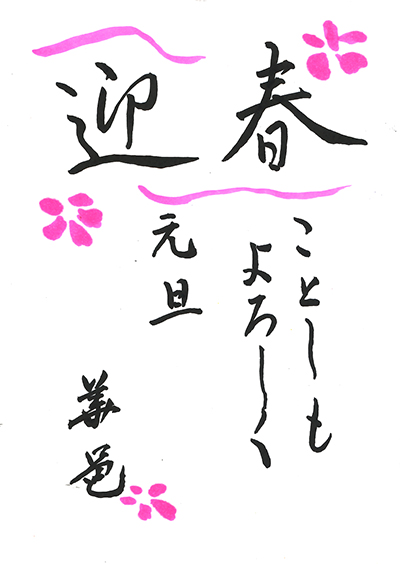 迎春
ことしも
よろしく
元旦
華邑